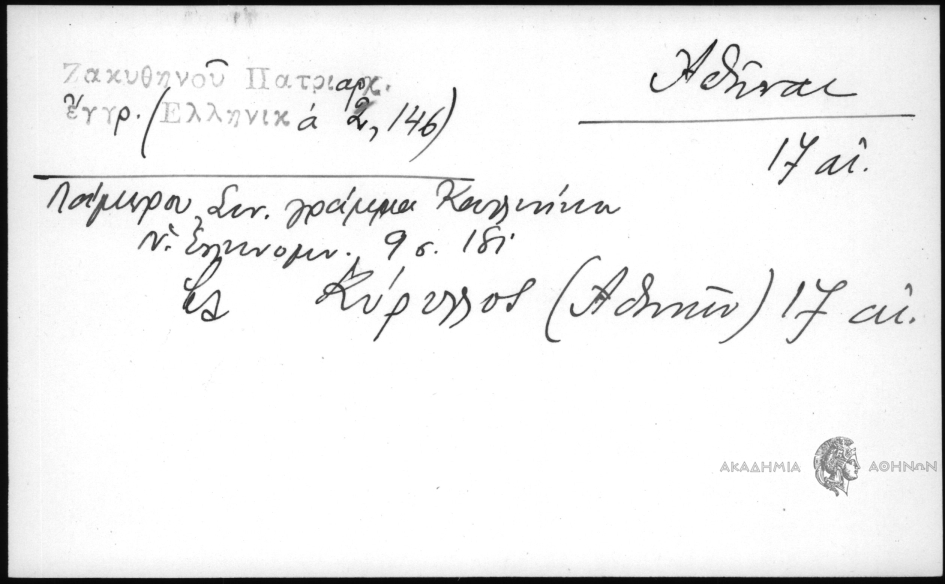 Ζακυθηνοῦ Πατριαρχ.
ἔγγρ. (Ἑλληνικά 2, 146)
Ἀθῆναι
17 αἰ.
Λάμπρου, Συν. γράμμα Καλλινίκου
Ν. Ἑλληνομν. 9 σ. 181
Κύριλλος (Ἀθηνῶν) 17 αἰ.
ΑΚΑΔΗΜΙΑ ΑΘΗΝΩΝ